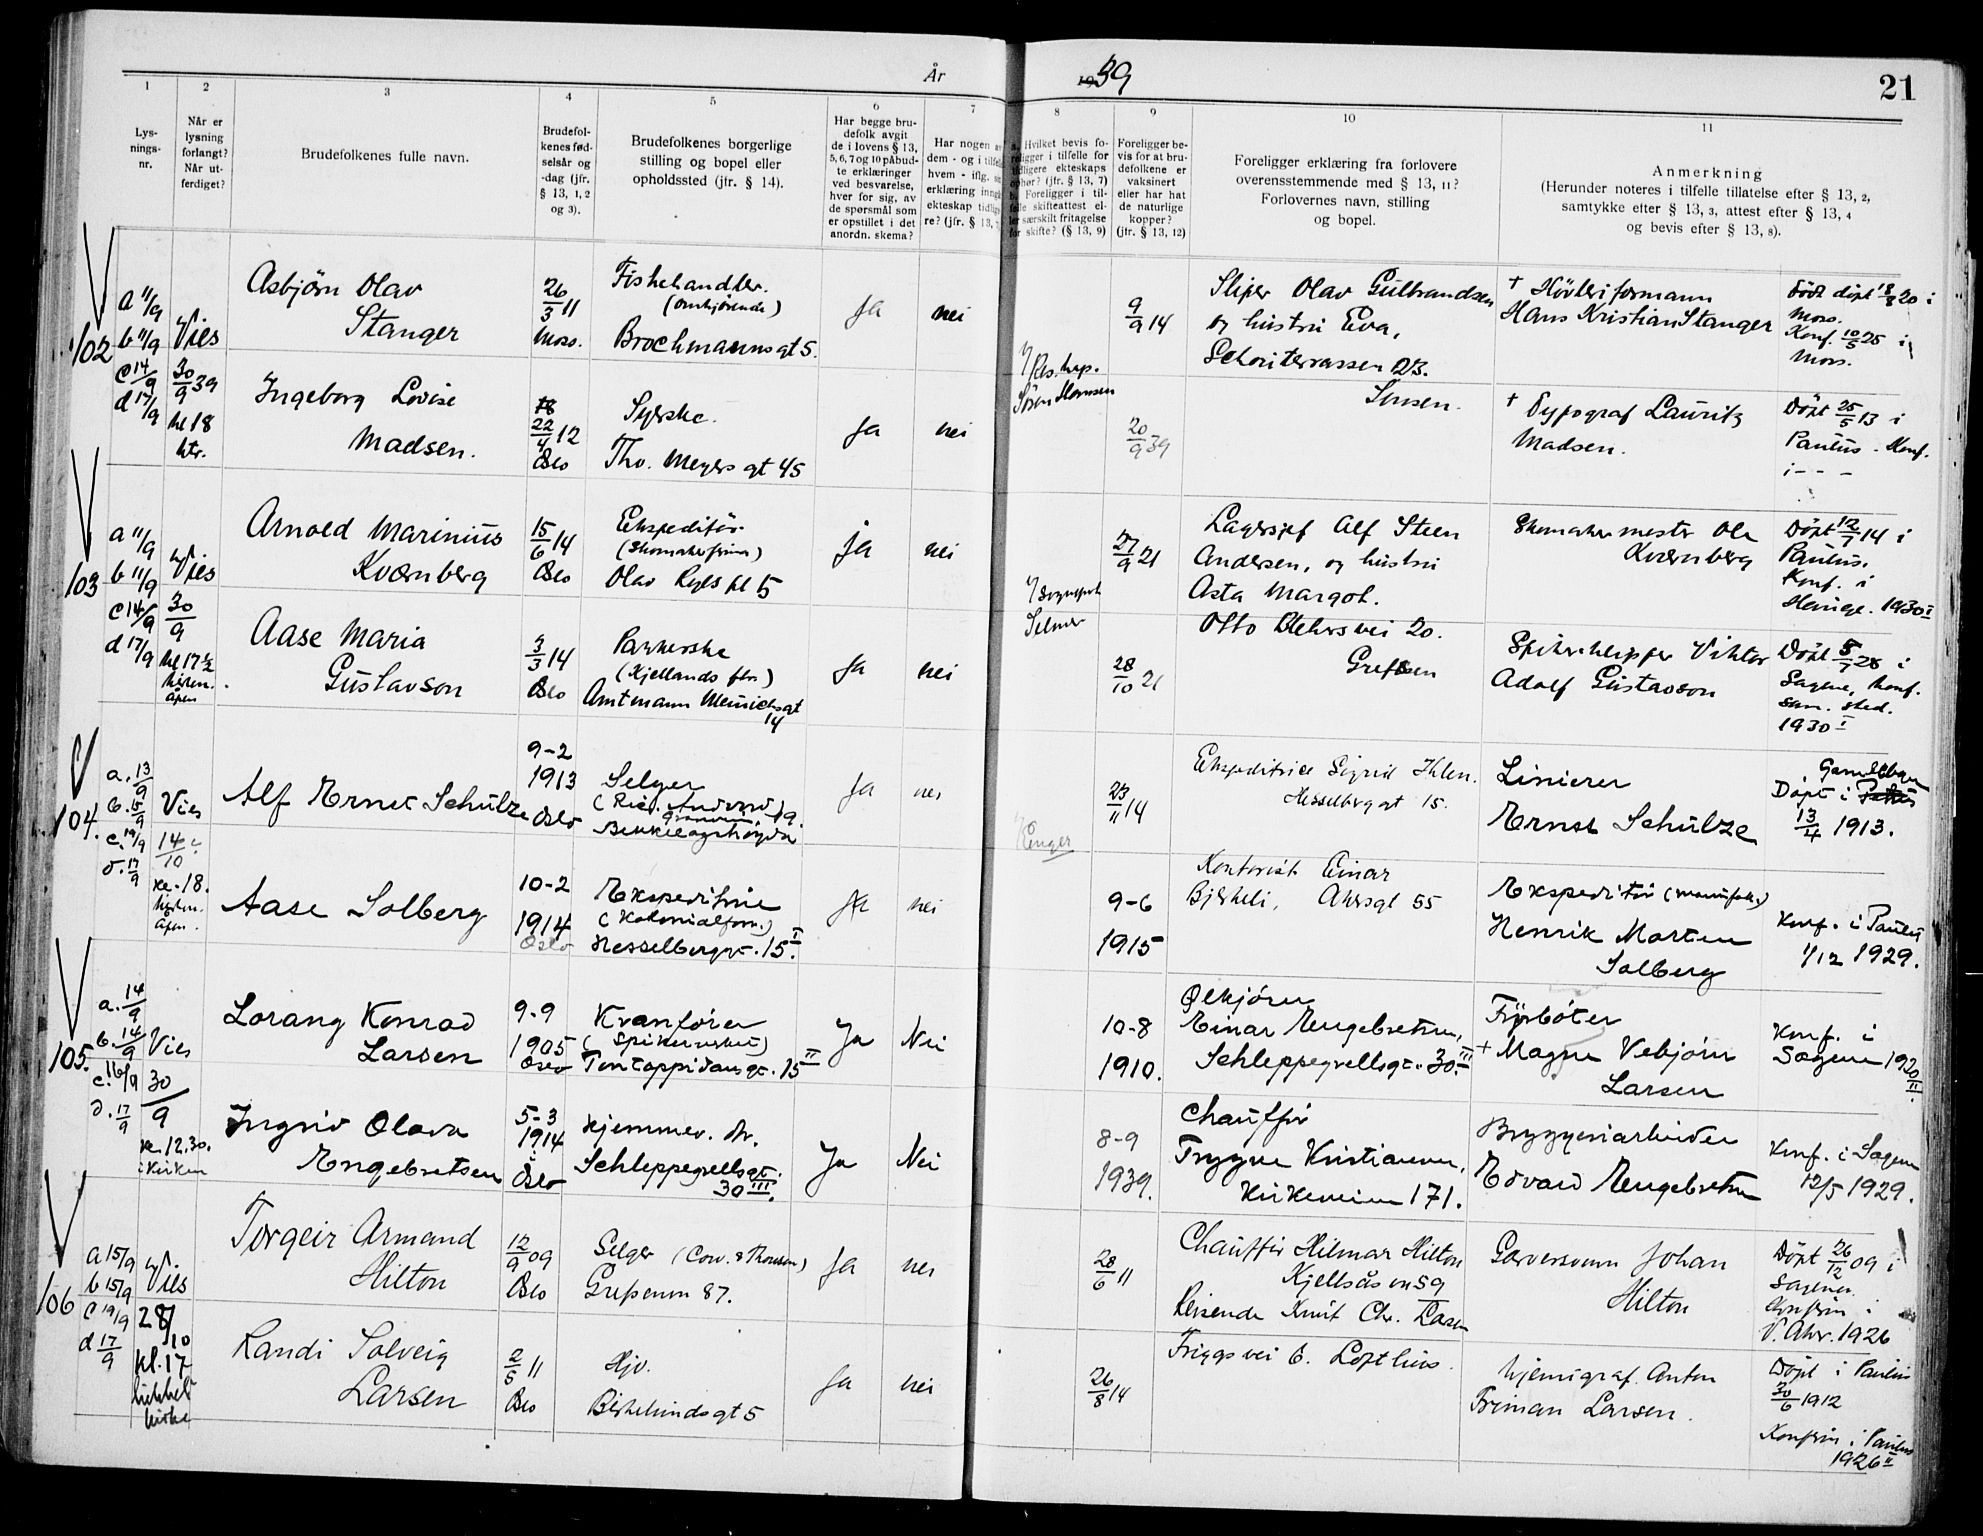 År
1939
21
1
2
3
4
5
6
7
8
9
10
11
Lys-
nings-
nr.
Når er
lysning
forlangt?
Når ut-
ferdiget?
Brudefolkenes fulle navn.
Brudefol-
kenes fød-
selsår og
-dag (jfr.
§ 13, 1, 2
og 3).
Brudefolkenes borgerlige
stilling og bopel eller
opholdssted (jfr. § 14).
Har begge bru-
defolk avgit
de i lovens § 13,
5, 6, 7 og 10 påbud-
te erklæringer
ved besvarelse,
hver for sig, av
de spørsmål som
er opstillet i det
anordn. skema?
Har nogen a
dem - og i tilfel
hvem - iflg. s
erklæring inng
ekteskap tidlig
re? (jfr. § 13, 7
a. Hvilket bevis fo-
religger i tilfelle for
tidligere ekteskaps
ophør? (jfr. § 13, 7)
b. Foreligger i til-
felle skifteattest el-
ler særskilt fritagelse
for skifte? (§ 13, 9)
Foreligger be-
vis for at bru-
defolkene er
vaksinert
eller har hat
de naturlige
kopper?
(jfr. § 13, 12)
Foreligger erklæring fra forlovere
overensstemmende med § 13, 11?
Forlovernes navn, stilling
og bopel.
Anmerkning
(Herunder noteres i tilfelle tillatelse efter § 13, 2,
samtykke efter § 13, 3, attest efter § 13, 4
og bevis efter § 13, 8).
102
a 11/9
b 11/9
c 14/9
d 17/9
Vies
30/9 39
kl 18
ktr.
Asbjørn Olav
Stanger
26/3 11
Moss.
Fiskehandler.
(omkjørende)
Brochmannsgt 5.
Ja
nei
9/9 14
Sliper Olav Gulbrandsen
og hustru Eva,
Schouterrassen 23.
Sinsen.
+ Høvleriformann
Hans Kristian Stanger
Født døpt 18/8 20 i
Moss.
Konf. 10/5 25 i
Moss.
Ingeborg Lovise
Madsen.
22/4 12
Oslo
Syerske.
Thv. Meyers gt 45
Ja
nei
Res. kap.
20/9 39
+ Typograf Lauritz
Madsen.
Døpt 25/5 13 i
Paulus. Konf.
i - - -
103
a 11/9
b 11/9
c 14/9
d 17/9
Vies
30/9
kl 17 ½
kirken.
åpen
Arnold Marinius
Kværnberg
15/6 14
Oslo
Ekspeditør.
(Skomakerfirma)
Olav Ryes pl 5
ja
nei
Sogneprest
Selmer
27/9 21
Lagersjef Alf Steen
Andersen, og hustru
Asta Margot.
Otto Blehrs vei 20.
Grefsen
Skomakermester Ole
Kværnberg
Døpt 12/7 14 i
Paulus.
Konf. i
Hauge. 1930 I
Aase Maria
Gustavson
3/3 14
Oslo
Pakkerske
(Kjellands fbr.)
Amtmann Meinichsgt
14
Ja
nei
28/10 21
Spikerklipper Viktor
Adolf Gustavson
Døpt 5/7 28 i
Sagene, Konf.
sam. sted.
1930 I
104.
a. 13/9
b. 15/9
c. 19/9
d. 17/9
Vies
14/10
kl. 18.
kirken.
åpen.
Alf Ernst Schulze
9-2
1913
Oslo
Selger
Bekkelagshøgda
Ja
nei
23/11 14
Ekspeditrice Sigrid Ihlen.
Hesselberggt 15.
Linierer
Ernst Schulze
Gamlebyen
Døpt i
13/4 1913.
Aase Solberg
10-2
1914
Oslo
Ekspeditrise
(Kolonialforr.)
Hesselberggt. 15 I.
Ja
nei
9-6
1915
Kontorist Einar
Bjerkeli, Akersgt 55
Ekspeditør (manufak.)
Henrik Morten
Solberg
Konf. i Paulus
1/12 1929.
105.
a. 14/9
b. 14/9
c. 16/9
d. 17/9
Vies
30/9
kl. 12.30.
i kirken
Lorang Konrad
Larsen
9-9
1905
Oslo
Kranfører
(Spikerverket)
Pontoppidans gt. 15 II
Ja
Nei
10-8
1910.
Ølkjører
Einar Engebretsen,
Schleppegrellsgt. 30 III.
Fyrbøter
+ Magne Vebjørn
Larsen
Konf. i
Sagene 1920 II.
Ingrid Olava
Engebretsen
5-3
1914
Oslo
Hjemmev. dtr.
Schleppegrellsgt.
30 III.
Ja
Nei
8-9
1939.
Chauffør
Trygve Kristiansen,
Kirkeveien 171.
Bryggeriarbeider
Edvard Engebretsen
Konf. i Sagene
12/5 1929.
106
a 15/9
b 15/9
c 19/9
d 17/9
Vies
28/10
kl. 17
lukket
kirke
Torgeir Armand
Hilton
12/9 09
Oslo
Selger (Cow. & Thomsen)
Grefsenvn 87.
Ja
nei
28/6 11
Chauffør Hilmar Hilton
Kjellsåsvn 59
Reisende Knut Chr. Larsen
Friggs vei 6. Lofthus.
Garversvenn Johan
Hilton
Døpt 26/12 09 i
Sagene.
Konfirm i
V. Aker. 1926
Randi Solveig
Larsen
2/5 11
Oslo
Hjv.
Birkelundsgt 5
Ja
nei
26/8 14
Kjemigraf Anton
Friman Larsen.
Døpt i Paulus
30/6 1912
Konfirm i Paulus
1926 II